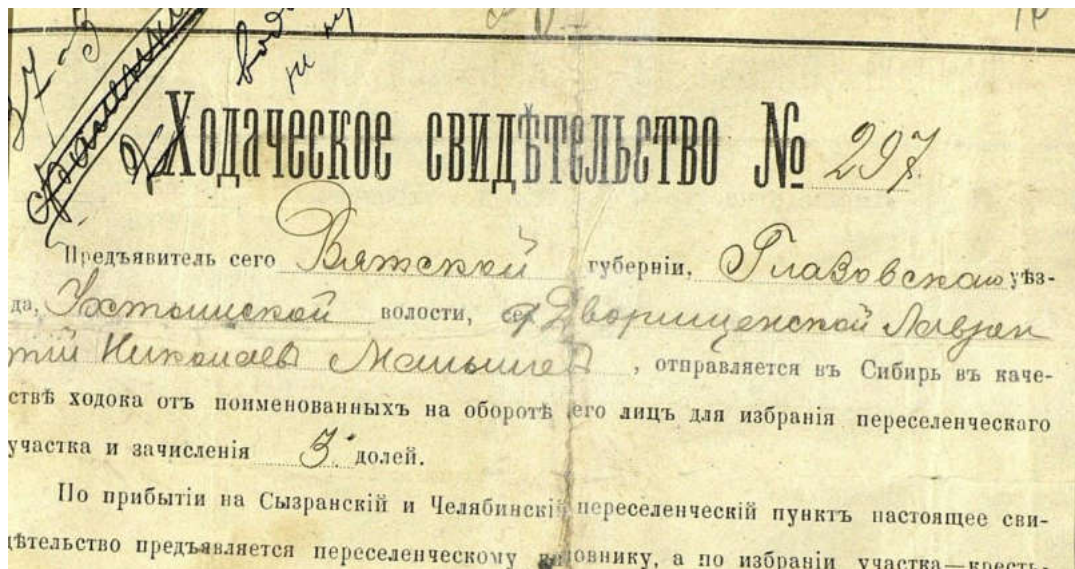 27-3
Ходаческое свидѣтельство № 297
Предъявитель сего Вятской губерніи, Глазовскаго уѣз-
да, Ухтымской волости, д. Дворищенской Лавген
тій Николаевъ Малышевъ, отправляется въ Сибирь въ каче-
ствѣ ходока отъ поименованныхъ на оборотѣ сего лицъ для избранія переселенческаго
участка и зачисленія 3 долей.
По прибытіи на Сызранскій и Челябинскій переселенческій пунктъ настоящее сви-
дѣтельство предъявляется переселенческому чиновнику, а по избраніи участка—кресть-